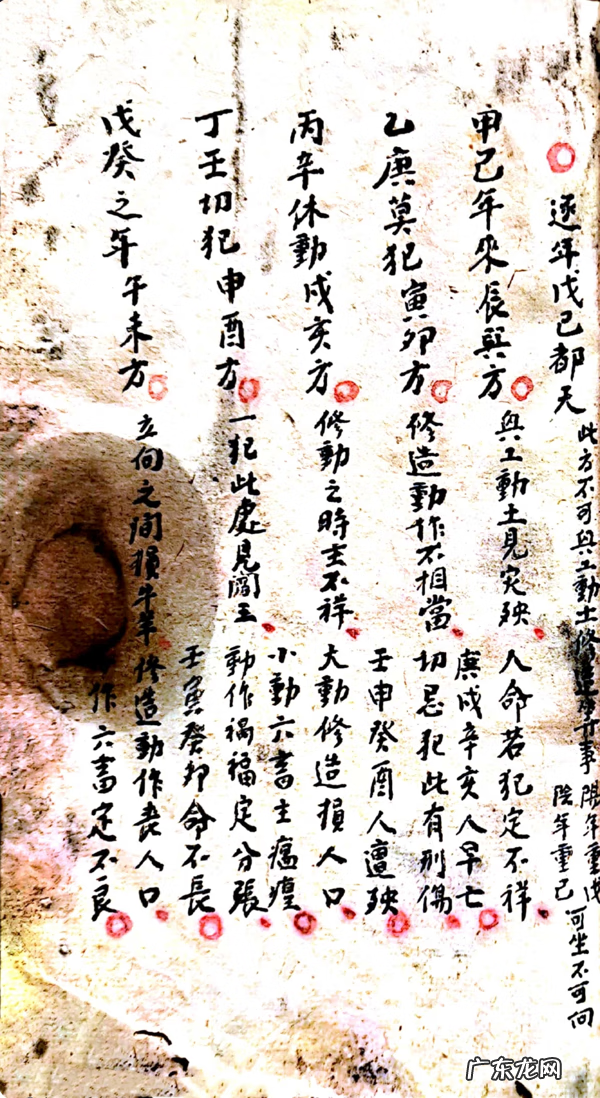 逐年戊己都天 此方不可與工動土修造事 陽年重戊
陰年重己 可坐不可向
甲己年來辰巽方 與工動土見灾殃 人命若犯定不祥
庚戌辛亥人早亡
乙庚莫犯寅卯方 修造動作不相當 切忌犯此有刑傷
壬申癸酉人遭殃
丙辛休動戌亥方 修動之時主不祥 大動修造損人口
小動六畜主瘟㾮
丁壬切犯申酉方 一犯此處見閻王 動作禍福定分張
壬寅癸卯命不長
戊癸之年午未方 立向之間損牛羊 修造動作喪人口
作六畜定不良
广东龙网